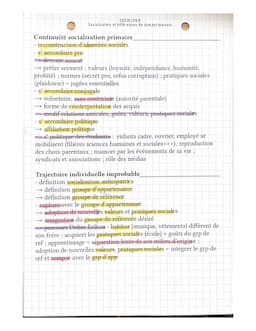 SOCIOLOGIE
Socialisation et différences de comportements
Continuité socialisation primaire
- reconstruction d'identités sociales
- s° secondaire pro
→ devenir avocat
→ prêter serment : valeurs (loyauté, indépendance, humanité,
probité) ; normes (secret pro, refus corruption) ; pratiques sociales
(plaidoirie) = jugées essentielles
- s° secondaire conjugale
→ volontaire, sans contrainte (autorité parentale)
→ forme de réinterprétation des acquis
→ modif relations amicales, goûts, valeurs, pratiques sociales
- s° secondaire politique
→ affiliation politique
→ s° politique des étudiants : enfants cadre, ouvrier, employé se
mobilisent (filières sciences humaines et sociales+++); reproduction
des choix parentaux ; nuancer par les événements de sa vie ;
syndicats et associations ; rôle des médias
Trajectoire individuelle improbable
- définition socialisation anticipatrice
- définition groupe d'appartenance
- définition groupe de référence
- rupture avec le groupe d'appartenance
→ adoption de nouvelles valeurs et pratiques sociales
→ intégration du groupe de référence désiré
→ parcours Didier Eribon : habitus (musique, vêtements) différent de
son frère ; acquiert les pratiques sociales (école) = goûts du grp de
ref ; apprentissage = séparation lente de son milieu d'origine ;
adoption de nouvelles valeurs, pratiques sociales = intégrer le grp de
ref et rompre avec le grp d'app